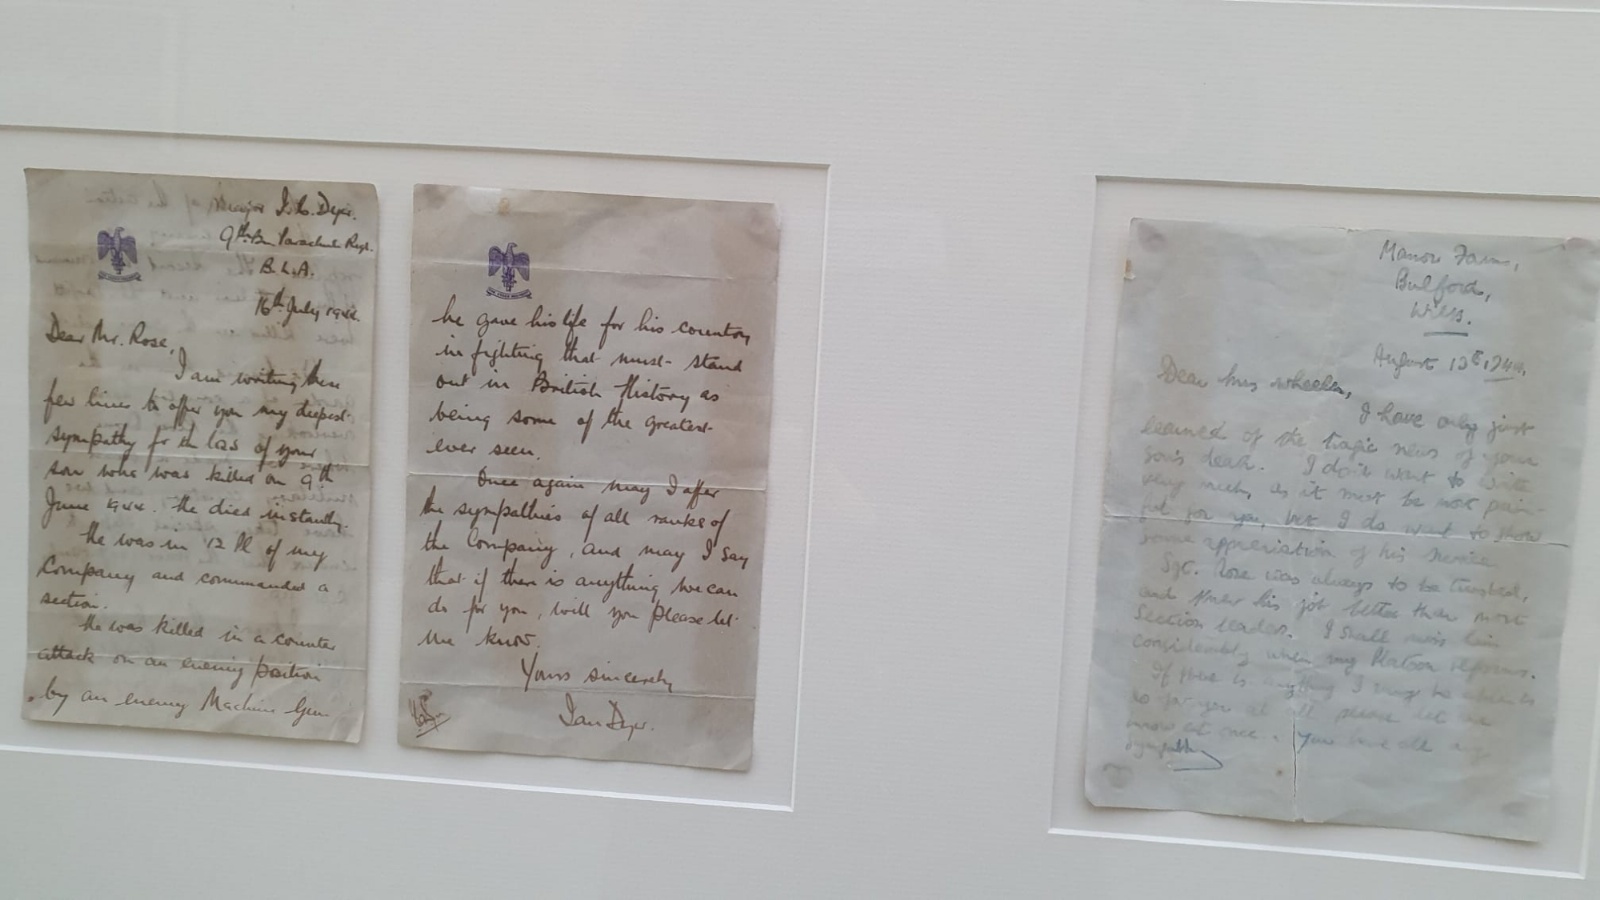 Major I.C. Dyer.
9th Bn Parachute Regt.
B.L.A.
16th July 1944.
Dear Mr. Rose,
I am writing these
few lines to offer you my deepest
sympathy for the loss of your
son who was killed on 9th
June 1944. He died instantly.
He was in 12 Pl of my
Company and commanded a
section.
He was killed in a counter
attack on an enemy position
by an enemy Machine Gun
he gave his life for his country
in fighting that must stand
out in British History as
being some of the greatest
ever seen.
Once again may I offer
the sympathies of all ranks of
the Company, and may I say
that if there is anything we can
do for you, will you please let
me know.
Yours sincerely
Ian Dyer.
Manor Farm,
Bulford,
Wilts.
August 13th, 1944.
Dear Mrs Wheeler,
I have only just
learned of the tragic news of your
son's death. I don't want to write
very much, as it must be most pain-
ful for you, but I do want to show
some appreciation of his service
Sgt. Rose was always to be trusted,
and knew his job better than most
Section leaders. I shall miss him
considerably when my Platoon reforms.
If there is anything I may be able to
do for you at all please let me
know at once. You have all my
sympathy